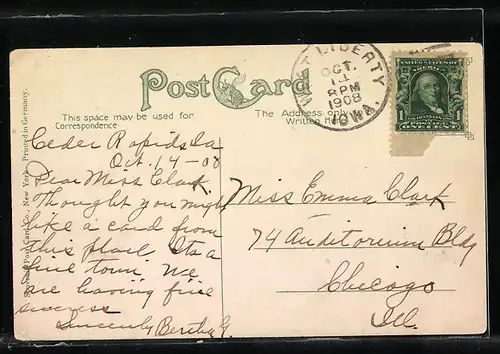 Post Card
This space may be used for
Correspondence
The Address only
Written
MT LIBERTY
OCT.
14
8 PM
1908
IOWA.
UNITED STATES OF
AMERICA
1
1
FRANKLIN
ONE CENT
Post Card Co. New York. Printed in Germany.
Ceder Rapids Ia
Oct. 14-08
Dear Miss Clark
Thought you might
like a card from
this place. Its a
fine town. We
are having fine
success
Sincerely Bertha G.
Miss Emma Clark
74 Auditorium Bldg
Chicago
Ill.